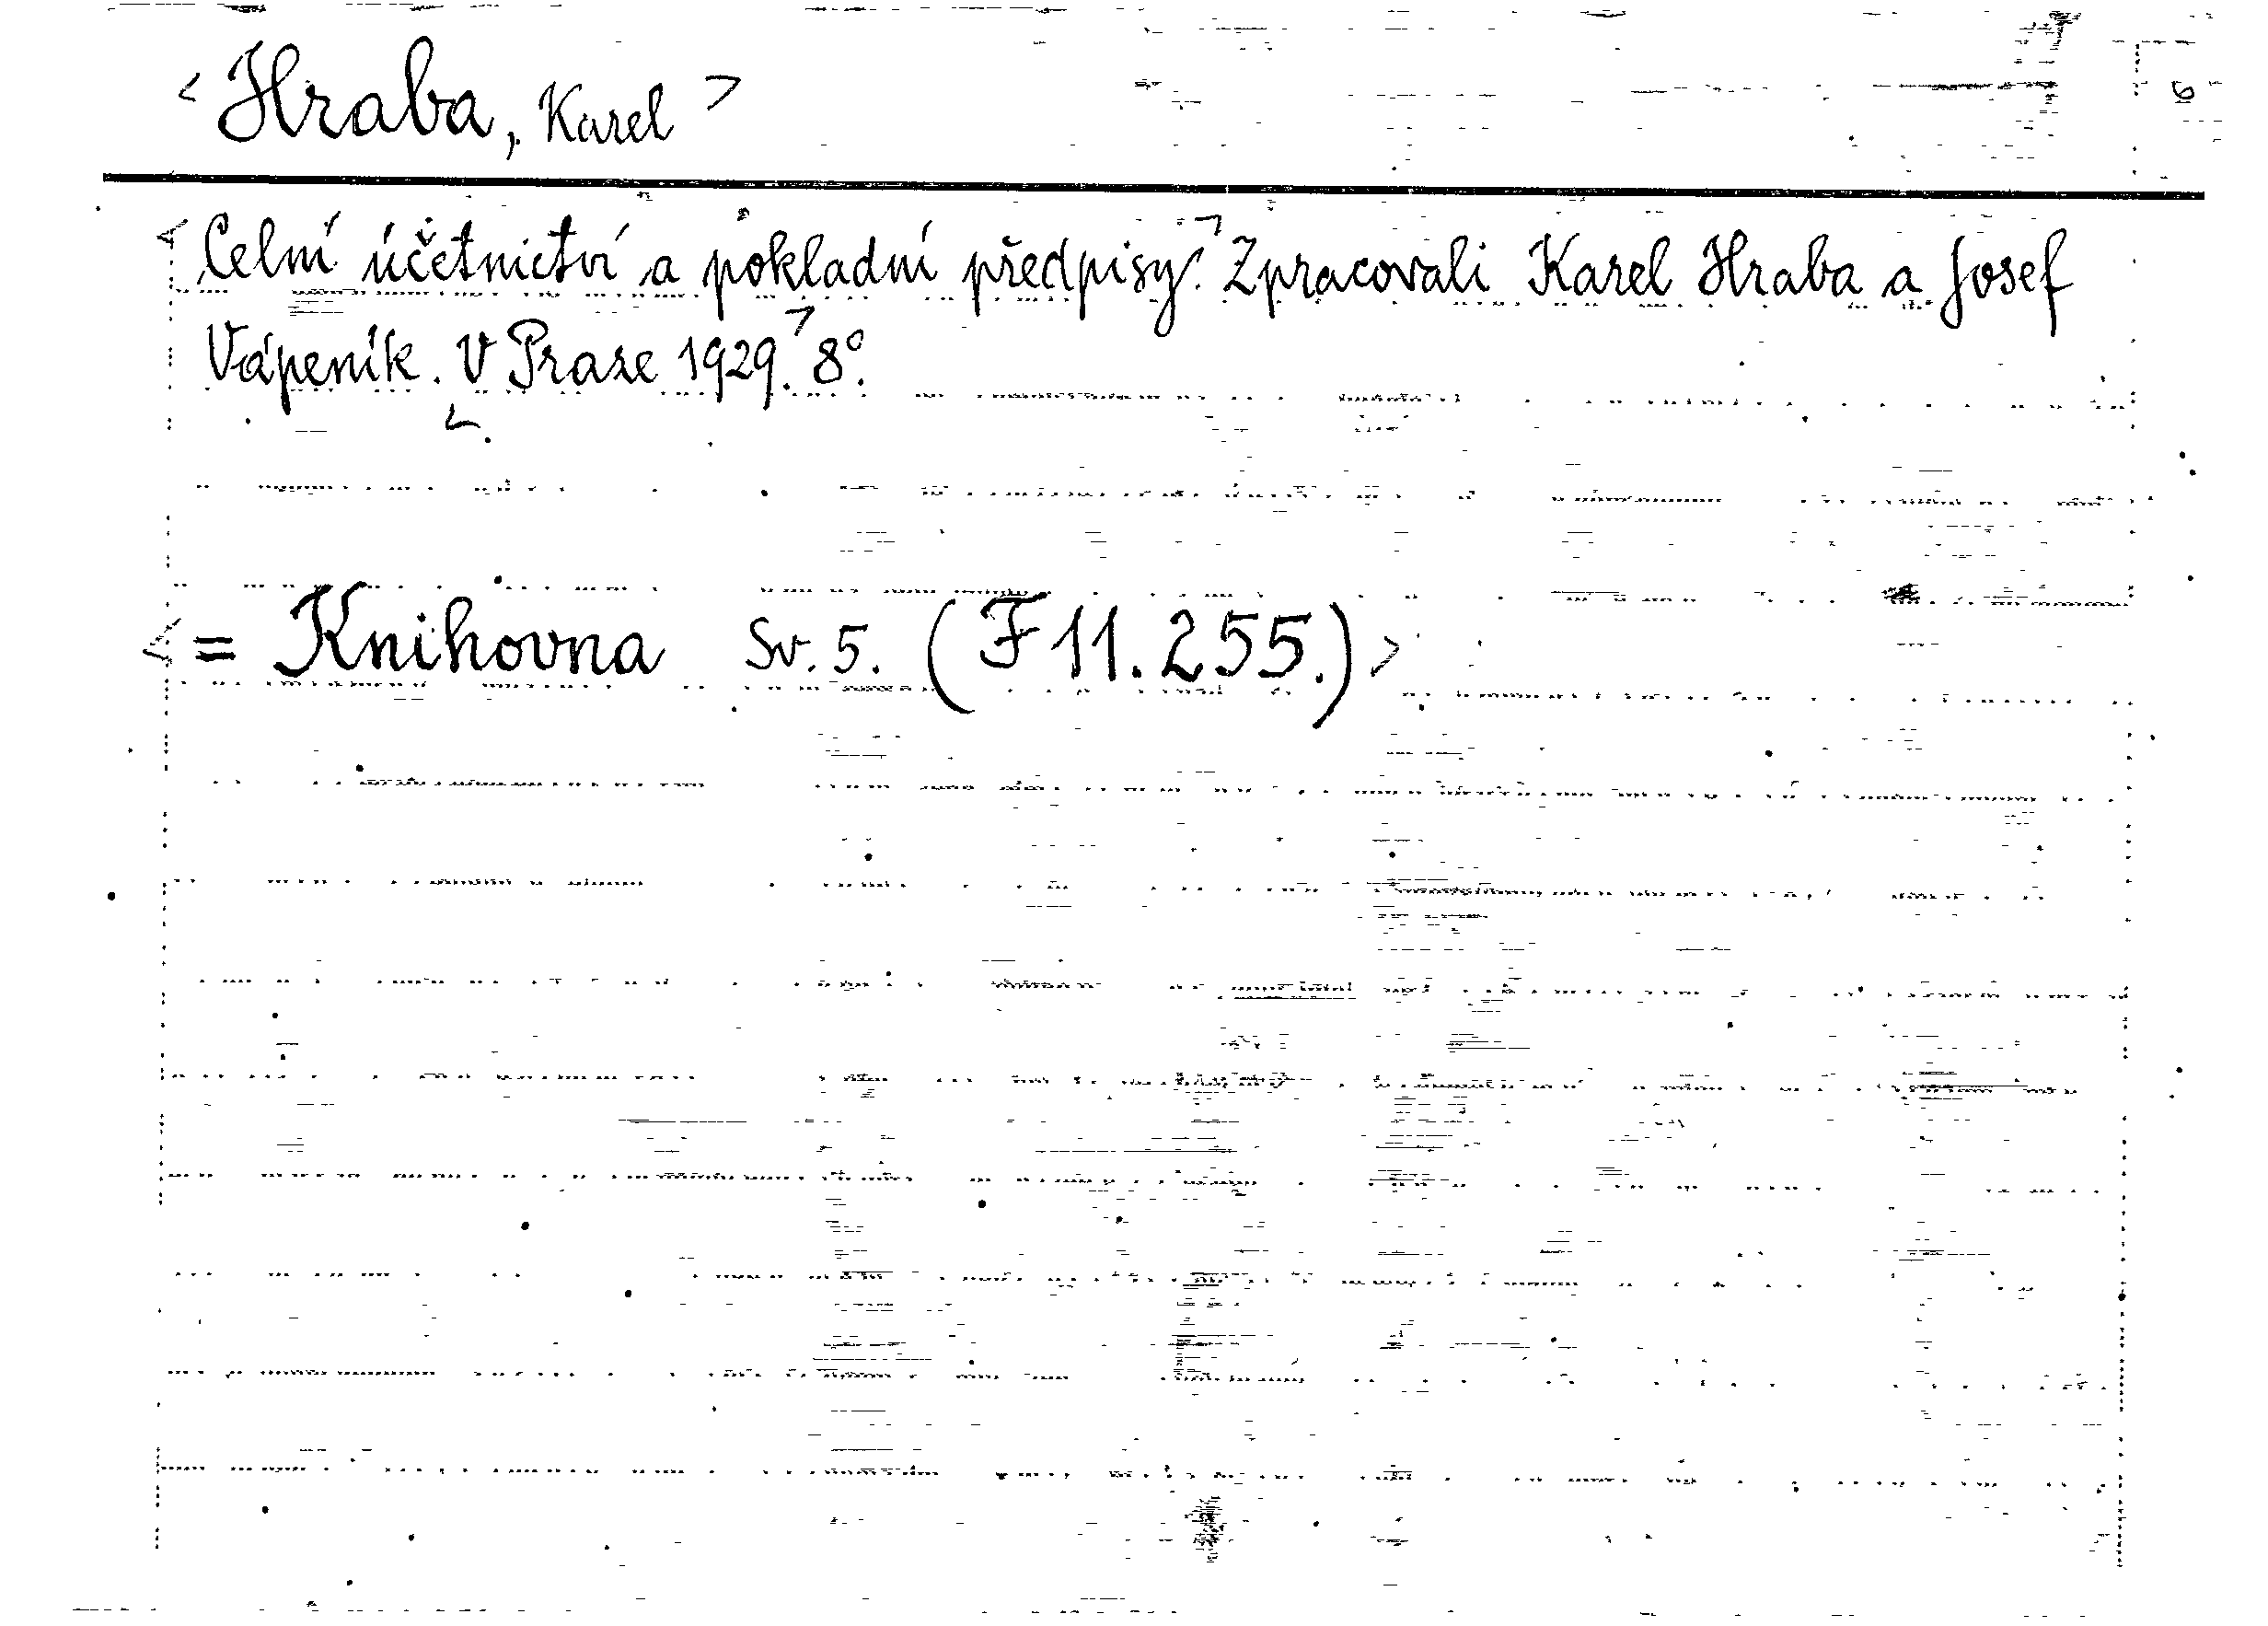 <Hraba, Karel>
<Celní účetnictví a pokladní předpisy.> Zpracovali Karel Hraba a Josef
Vápeník. <V Praze 1929.> 8°.
<= Knihovna Sv. 5. (F 11.255.)>